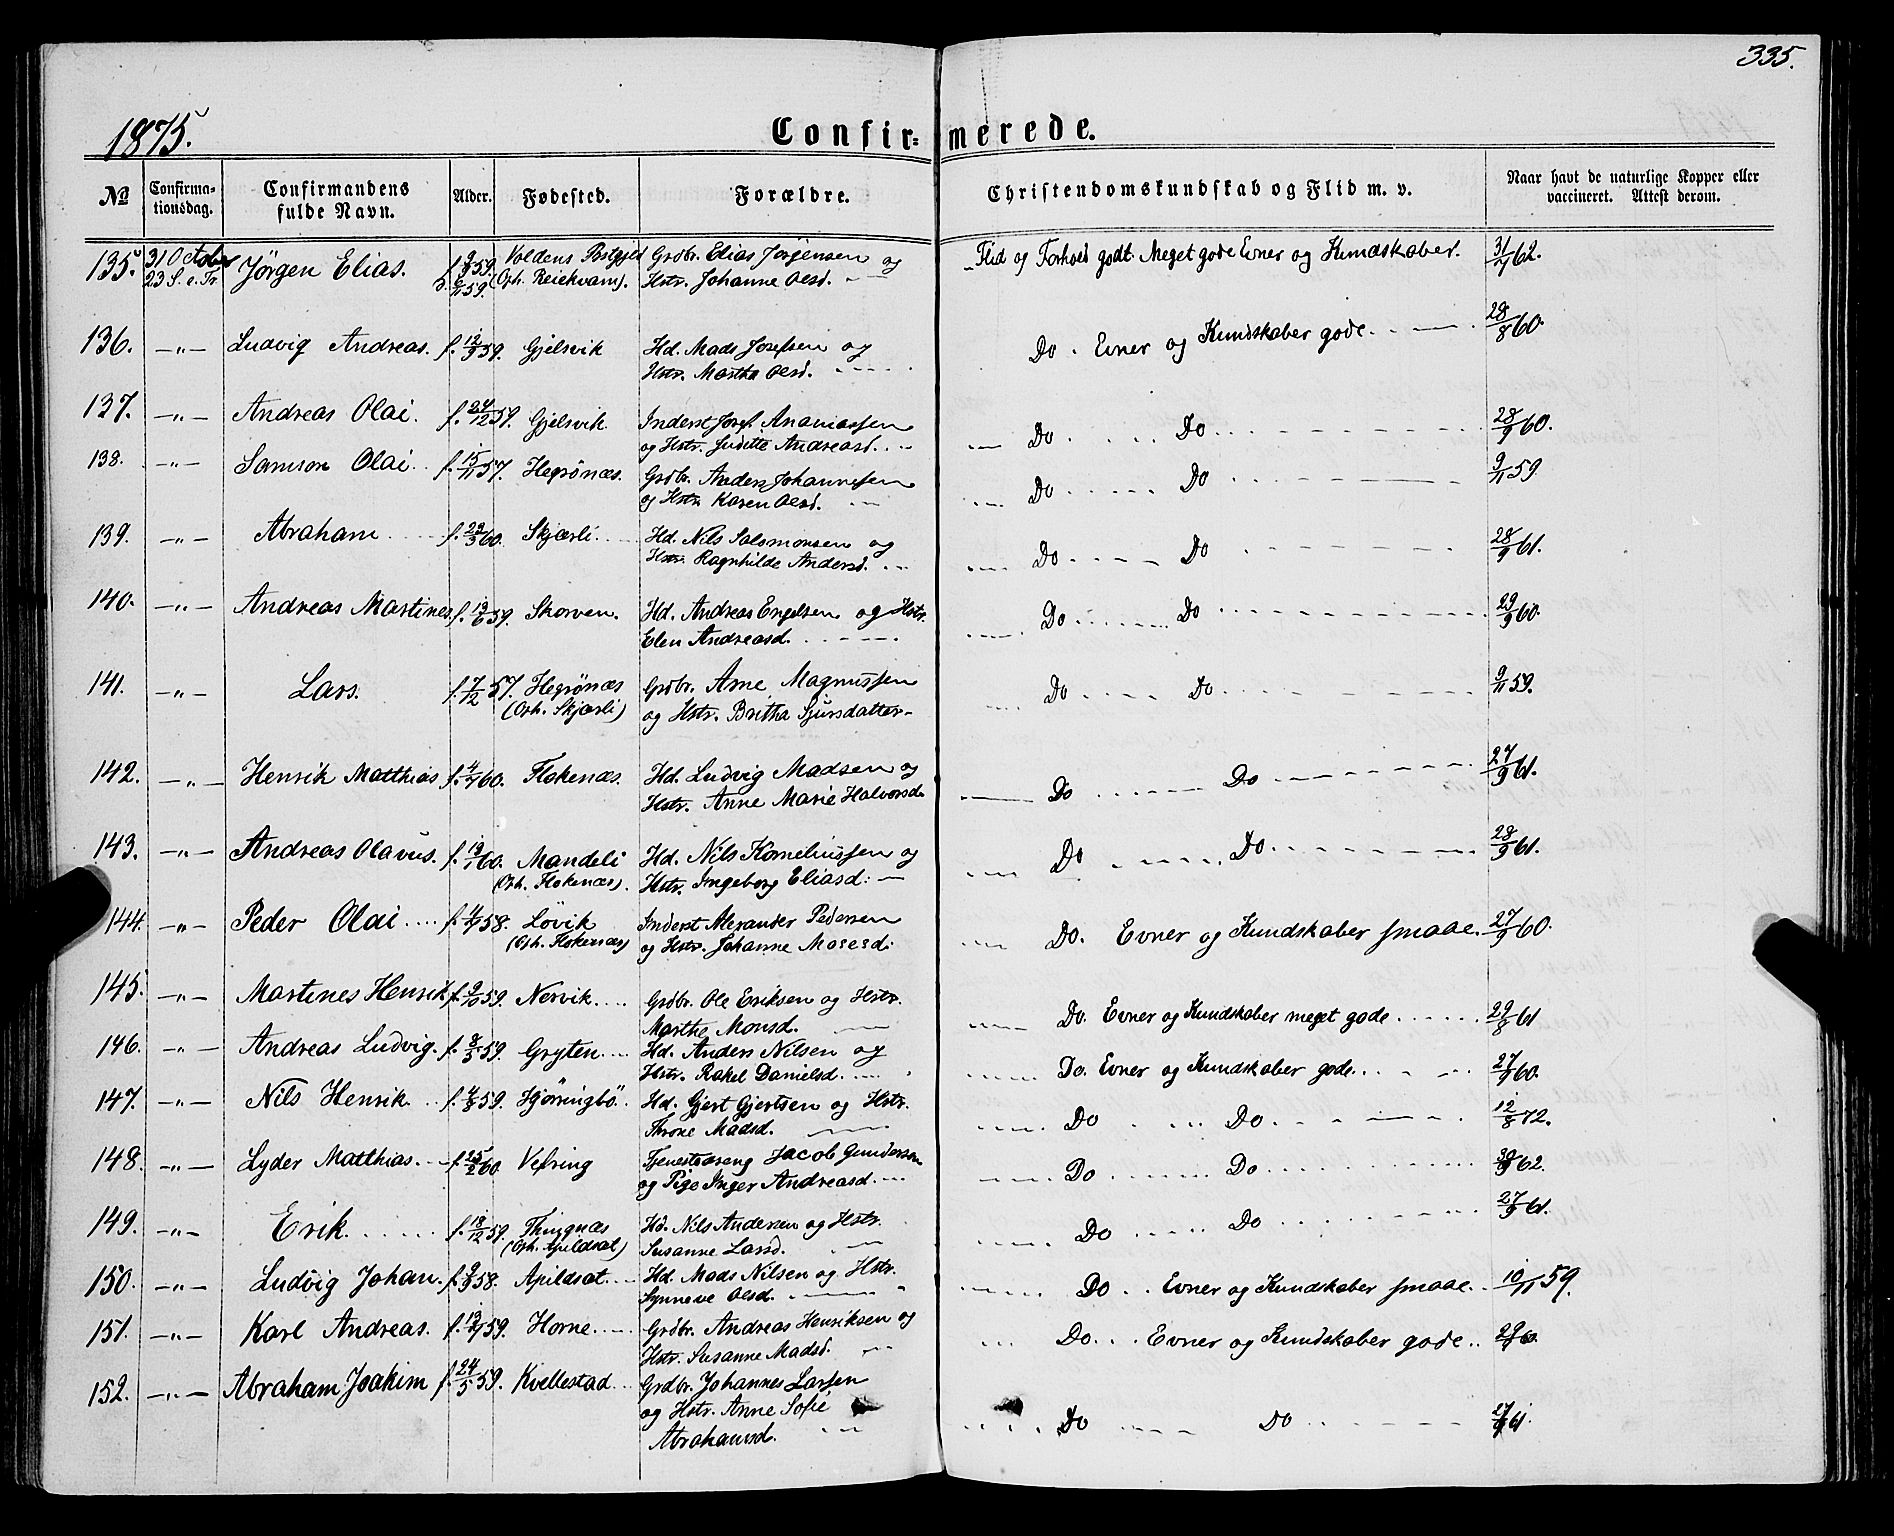 335.
1875.
Confirmerede.
No
Confirmationsdag.
Confirmandens fulde Navn.
Alder.
Fødested.
Forældre.
Christendomskundskab og Flid m. v.
Naar havt de naturlige Kopper eller vaccineret. Attest derom.
135. 31 October Jörgen Elias. 59. Voldens Præstgjeld Grdbr. Elias Jörgensen og Flid og Forhold godt. Meget gode Evner og Kundskaber. 31/7 62.
23 S. e. Tr. 59. (Oph. Reiekvam). Hstr. Johanne Olsd.
136. -"- Ludvig Andreas. f. 12/9 59. Gjelsvik Hd. Mads Josefsen og Do. Evner og Kundskaber gode. 28/8 60.
Hstr. Martha Olsd.
137. -"- Andreas Olai. f. 24/12 59. Gjelsvik Inderst Josef Ananiassen Do Do 28/9 60.
og Hstr. Juditte Andreasd.
138. -"- Samson Olai f. 15/11 57. Hegrönæs. Grdbr. Anders Johannesen Do Do 9/11 59
og Hstr. Karen Olsd.
139. -"- Abraham f. 29/3 60. Skjærli Hd. Nils Salomonsen og Do Do 28/9 61.
Hstr. Ragnhilde Andersd.
140. -"- Andreas Martines f. 13/6 59. Skorven. Hd. Andreas Engelsen og Hstr. Do Do 29/9 60.
Elen Andreasd.
141. -"- Lars. f. 7/12 57. Hegrönæs Grdbr. Arne Magnussen Do Do 9/11 59.
(Oph. Skjærli) og Hstr. Britha Sjursdatter
142. -"- Henrik Matthias f. 4/7 60. Flokenæs. Hd. Ludvig Madsen og Do Do 27/9 61.
Hstr. Anne Marie Halvorsd.
143. -"- Andreas Olavus. f. 19/1 60. Mandeli Hd. Nils Kornelinssen og Do Do 28/9 61.
(Oph. Flokenæs). Hstr. Ingeborg Eliasd.
144. -"- Peder Olai f. 4/9 58. Lövik Inderst Alexander Pedersen Do. Evner og Kundskaber smaae. 27/9 60.
(Oph. Flokenæs) og Hstr. Johanne Mosesd.
145. -"- Martines Henrik f. 9/10 59. Nervik Grdbr. Ole Eriksen og Hstr. Do. Evner og Kundskaber meget gode 29/8 61
Marthe Monsd.
146. -"- Andreas Ludvig. f. 8/5 59. Gryten Hd. Anders Nilsen og Do. Evner og Kundskaber gode. 27/9 60.
Hstr. Rakel Danielsd.
147. -"- Nils Henrik. f. 4/8 59. Hjörringbö. Hd. Gjert Gjertsen og Hstr. Do Do 12/8 72.
Throne Madsd.
148. -"- Lyder Matthias. f. 25/2 60. Vefring Tjenestedreng Jacob Gundersen Do Do 30/9 62.
og Pige Inger Andreasd.
149. -"- Erik. f. 18/12 59. Thingnæs Hd. Nils Andersen og Hstr. Do Do 27/9 61.
(Oph. Apildsæt) Susanne Larsd.
150. -"- Ludvig Johan. f. 9/9 58. Apildsæt Hd. Mads Nilsen og Hstr. Do Evner og Kundskaber smaae. 10/11 59.
Synneve Olsd.
151. -"- Karl Andreas. f. 13/7 59. Horne Grdbr. Andreas Henriksen og Do Evner og Kundskaber gode. 60.
Hstr. Susanne Madsd.
152. -"- Abraham Joakim f. 24/5 59. Kvellestad Grdbr. Johannes Larsen
og Hstr. Anne Sofie Do Do 27/9 61.
Abrahamsd.